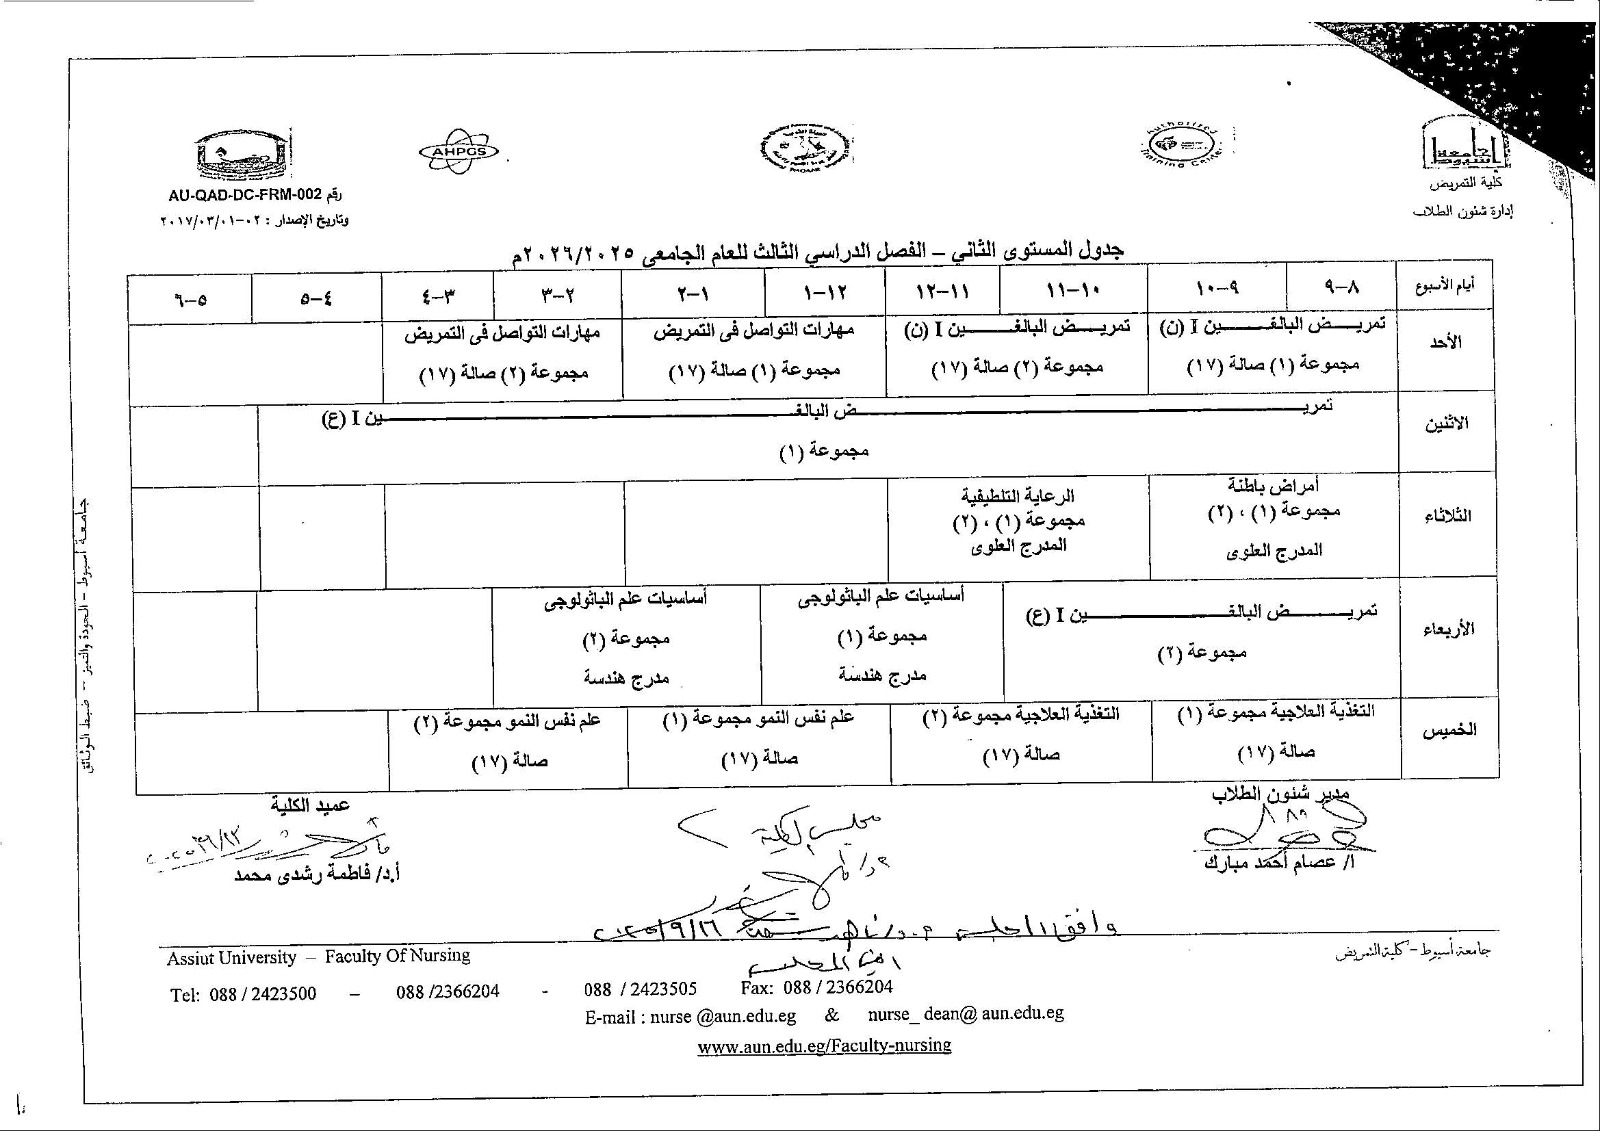 جامعة أسيوط
Authorized Training Center
AHPGS
كلية التمريض
إدارة شئون الطلاب
رقم AU-QAD-DC-FRM-002
وتاريخ الإصدار : ٠٢-٢٠١٧/٠٣/٠١
جدول المستوى الثاني – الفصل الدراسي الثالث للعام الجامعى ٢٠٢٦/٢٠٢٥م
أيام الأسبوع ٨-٩ ٩-١٠ ١٠-١١ ١١-١٢ ١٢-١ ١-٢ ٢-٣ ٣-٤ ٤-٥ ٥-٦
الأحد
تمريـــض البالغـــــــين I (ن)
مجموعة (١) صالة (١٧)
تمريـــض البالغـــــــين I (ن)
مجموعة (٢) صالة (١٧)
مهارات التواصل فى التمريض
مجموعة (١) صالة (١٧)
مهارات التواصل فى التمريض
مجموعة (٢) صالة (١٧)
الاثنين
تمريـــــــــــــض البالغـــــــــــــين I (ع)
مجموعة (١)
الثلاثاء
أمراض باطنة
مجموعة (١) ، (٢)
المدرج العلوى
الرعاية التلطيفية
مجموعة (١) ، (٢)
المدرج العلوى
الأربعاء
تمريـــــــض البالغـــــــــــــين I (ع)
مجموعة (٢)
أساسيات علم الباثولوجى
مجموعة (١)
مدرج هندسة
أساسيات علم الباثولوجى
مجموعة (٢)
مدرج هندسة
الخميس
التغذية العلاجية مجموعة (١)
صالة (١٧)
التغذية العلاجية مجموعة (٢)
صالة (١٧)
علم نفس النمو مجموعة (١)
صالة (١٧)
علم نفس النمو مجموعة (٢)
صالة (١٧)
جامعة أسيوط – الجودة والتميز – ضبط الوثائق
مدير شئون الطلاب
ا/ عصام أحمد مبارك
مجلس الكلية
وافق المجلس
٢٠٢٥/٩/١٦
أمين المجلس
عميد الكلية
أ.د/ فاطمة رشدى محمد
جامعة أسيوط – كلية التمريض
Assiut University – Faculty Of Nursing
Tel: 088 / 2423500 – 088 /2366204 - 088 / 2423505 Fax: 088 / 2366204
E-mail : nurse @aun.edu.eg & nurse_ dean@ aun.edu.eg
www.aun.edu.eg/Faculty-nursing